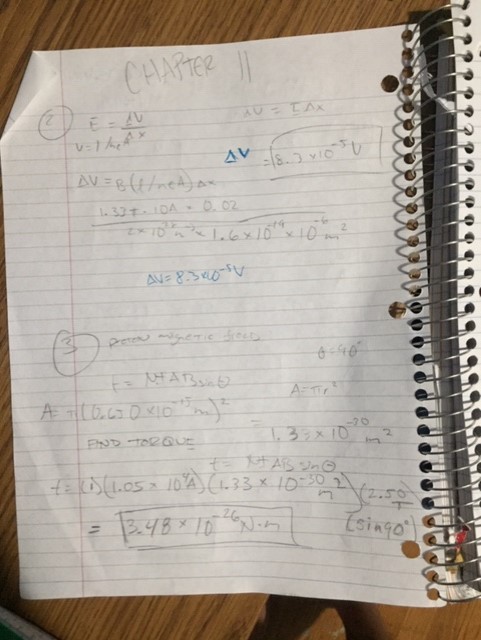 CHAPTER 11
② E = ΔV/Δx ΔV = E Δx
v = I/neA
ΔV = 8.3 × 10⁻⁵ V
ΔV = B(I/neA) Δx
1.33T · 10A × 0.02
2 × 10²⁸ m⁻³ × 1.6 × 10⁻¹⁹ × 10⁻⁶ m²
ΔV = 8.3×10⁻⁵ V
③ magnetic θ = 90°
t = NIAB sinθ A = πr²
A = π(0.620 × 10⁻¹⁵ m)²
= 1.33 × 10⁻³⁰ m²
FIND TORQUE
t = NIAB sinθ
t = (1)(1.05 × 10⁴ A)(1.33 × 10⁻³⁰ m²)(2.50 T)
(sin 90°)
= 3.48 × 10⁻²⁶ N·m